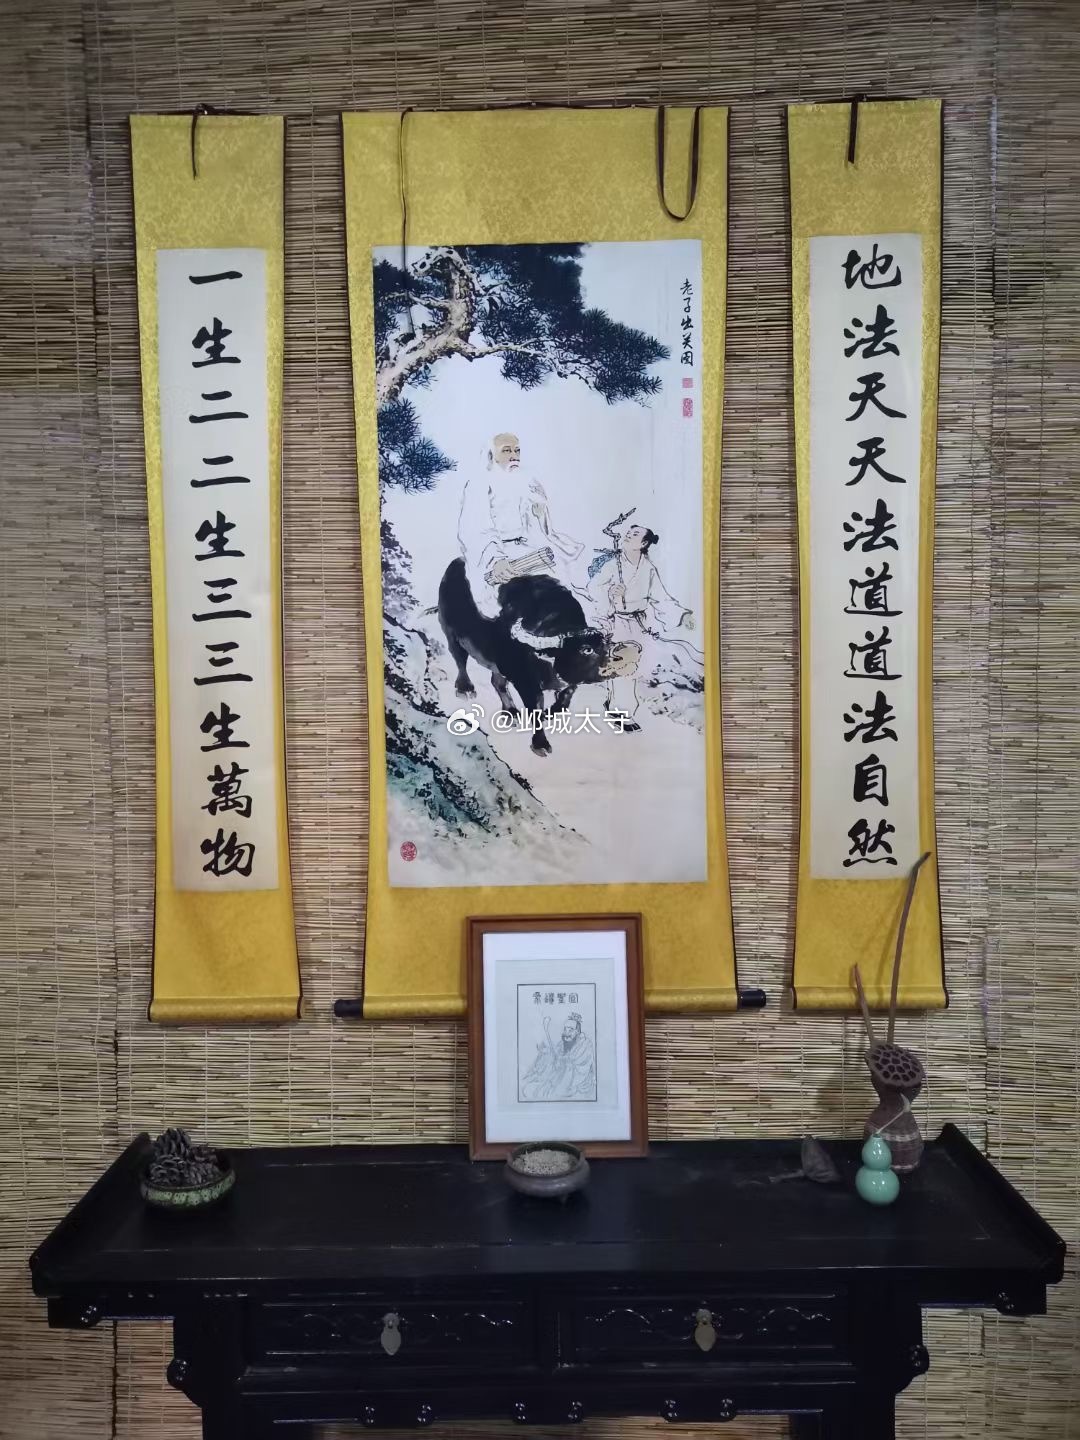 地法天天法道道法自然
老子出关图
一生二二生三三生萬物
@邺城太守